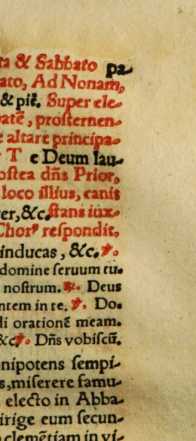 ta & Sabbato pa-
ato, Ad Nonam,
& pié. Super ele-
batē, prosternen-
e altare principa-
T e Deum lau-
ostea dñs Prior,
loco illius, canis
er, &c. stans iux-
Chorꝰ respondit,
inducas, &c. ℣.
domine seruum tu.
nostrum. ℟. Deus
ntem in te. ℣. Do.
di orationē meam.
&c ℣. Dñs vobiscū.
nipotens sempi-
s, miserere famu-
electo in Abba
irige eum secun-
clemētiam in vi-